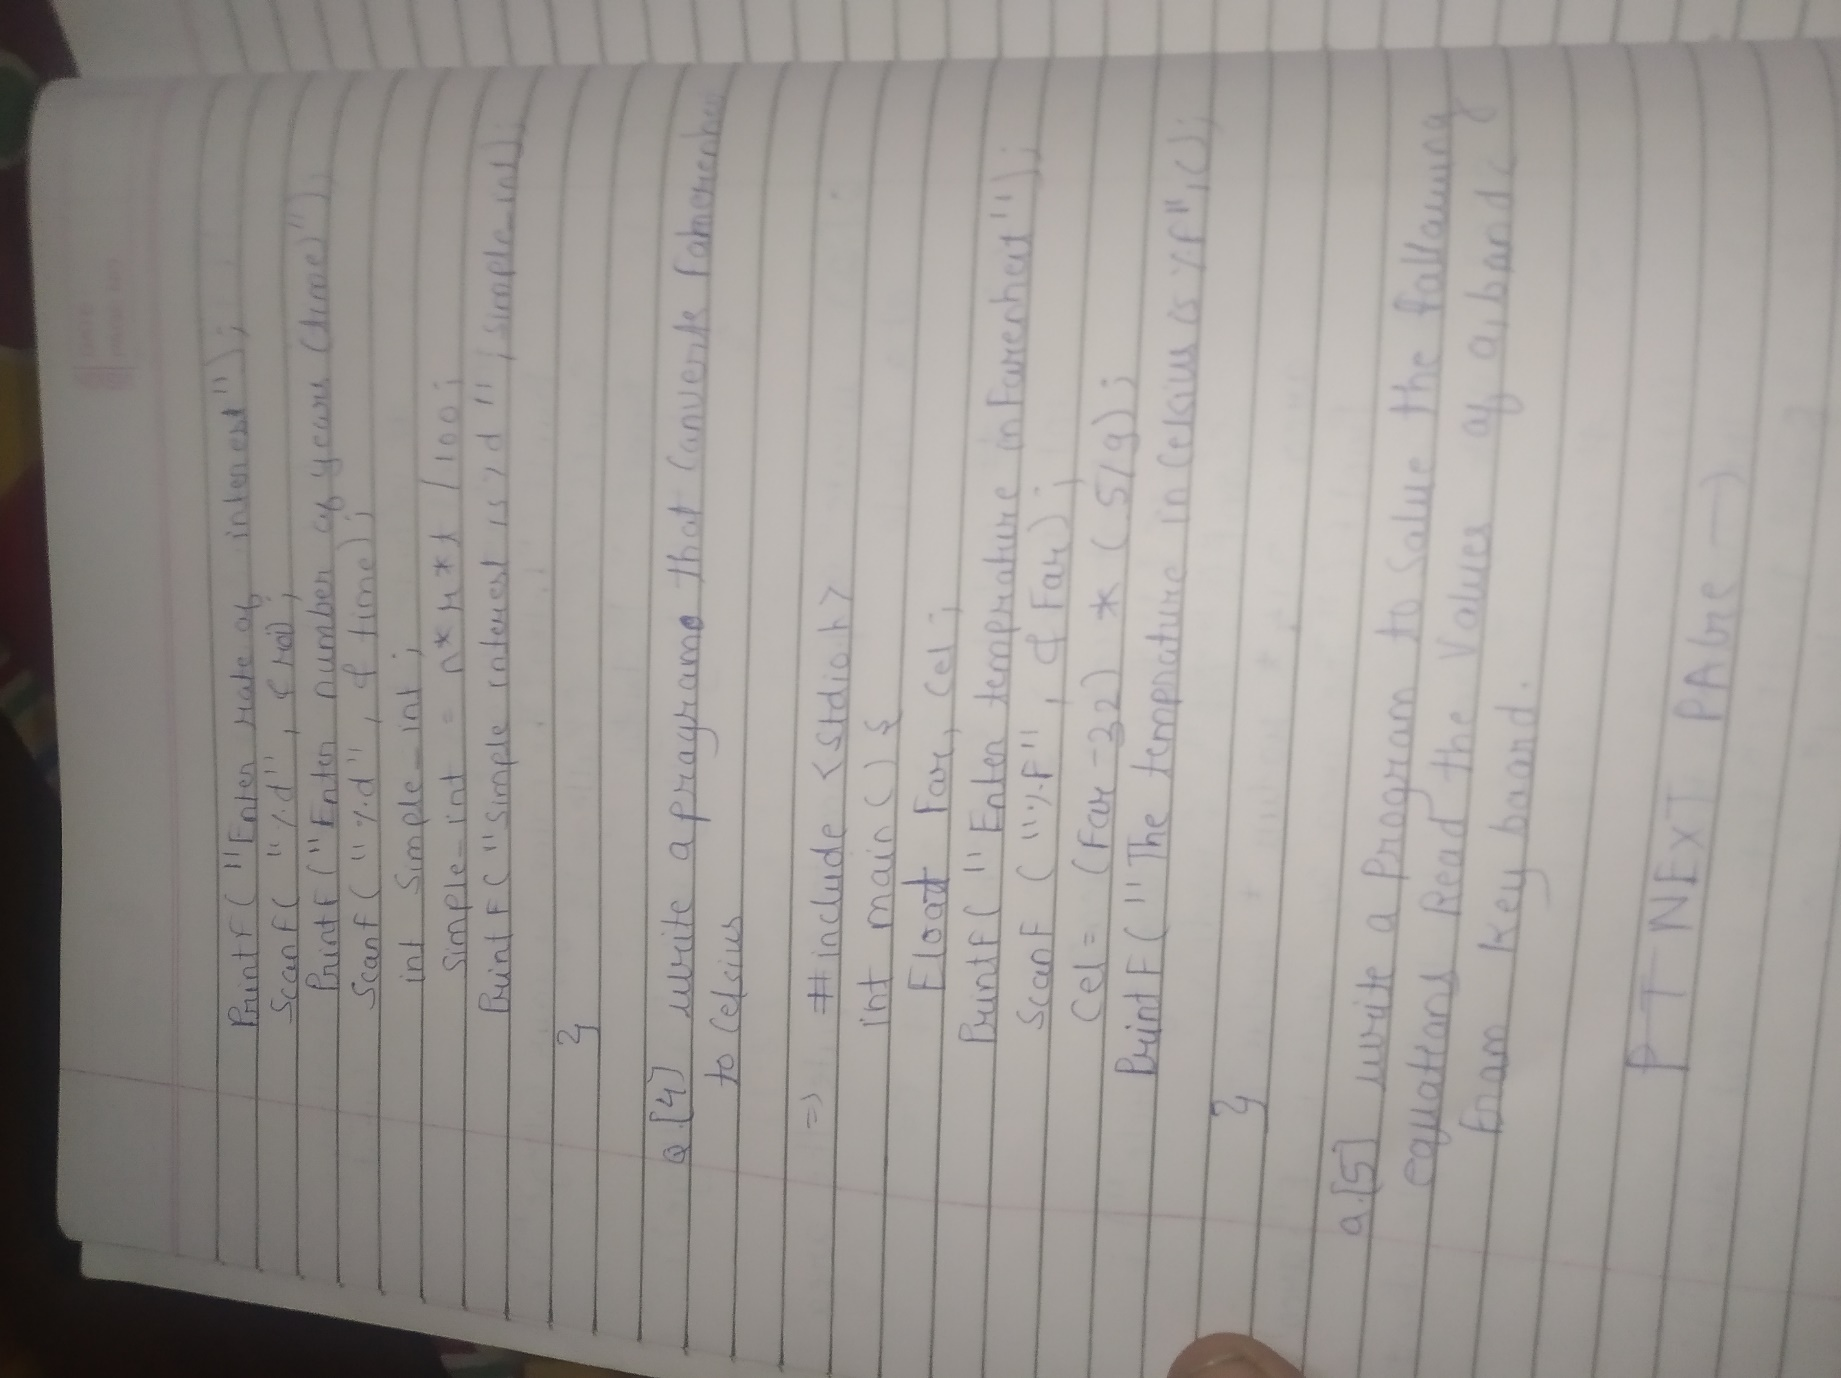 DATE
PAGE NO.
Printf ("Enter rate of interest");
Scanf ( "%d", & roi);
Printf ("Enter number of years (time)");
Scanf ( "%d", & time);
int Simple_int;
Simple_int = n*r*t /100;
Printf ("Simple interest is %d", Simple_int);
}
Q.[4] write a programe that Converts
to Celsius
=> #include <stdio.h>
int main () {
Float Far, Cel;
Printf (" Enter temprature in Farenheit");
Scanf ( "%f", & Far);
Cel = (Far -32) * (5/9);
Printf ("The temprature in Celsius is %f", C);
}
Q.[5] write a Program to Salue the following
equations Read the Values of a, b and c
From Key board.
P T NEXT PAGE →